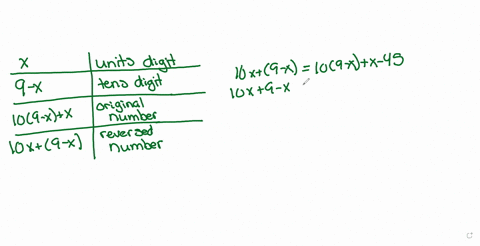 x units digit
9-x tens digit
10(9-x)+x original number
10x+(9-x) reversed number
10x+(9-x) = 10(9-x)+x-45
10x+9-x